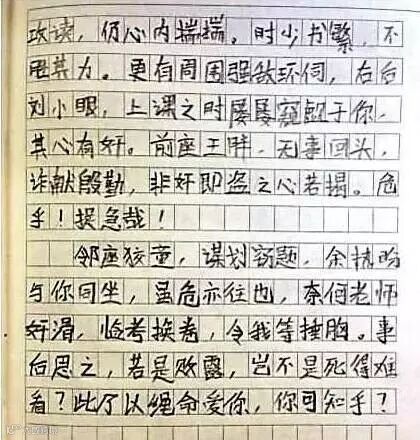 攻读，仍心内揣揣。时少书繁，不
胜其力。更有周围强敌环伺，右后
刘小眼，上课之时屡屡窥觎于你，
其心有奸。前座王胖，无事回头，
诈献殷勤，非奸即盗之心若揭。危
乎！捉急哉！
邻座狡童，谋划窃题，余情盼
与你同坐，虽危亦往也，奈何老师
奸滑，临考换卷，令我等捶胸。事
后思之，若是败露，岂不是死得难
看？此乃以绳命爱你，你可知乎？